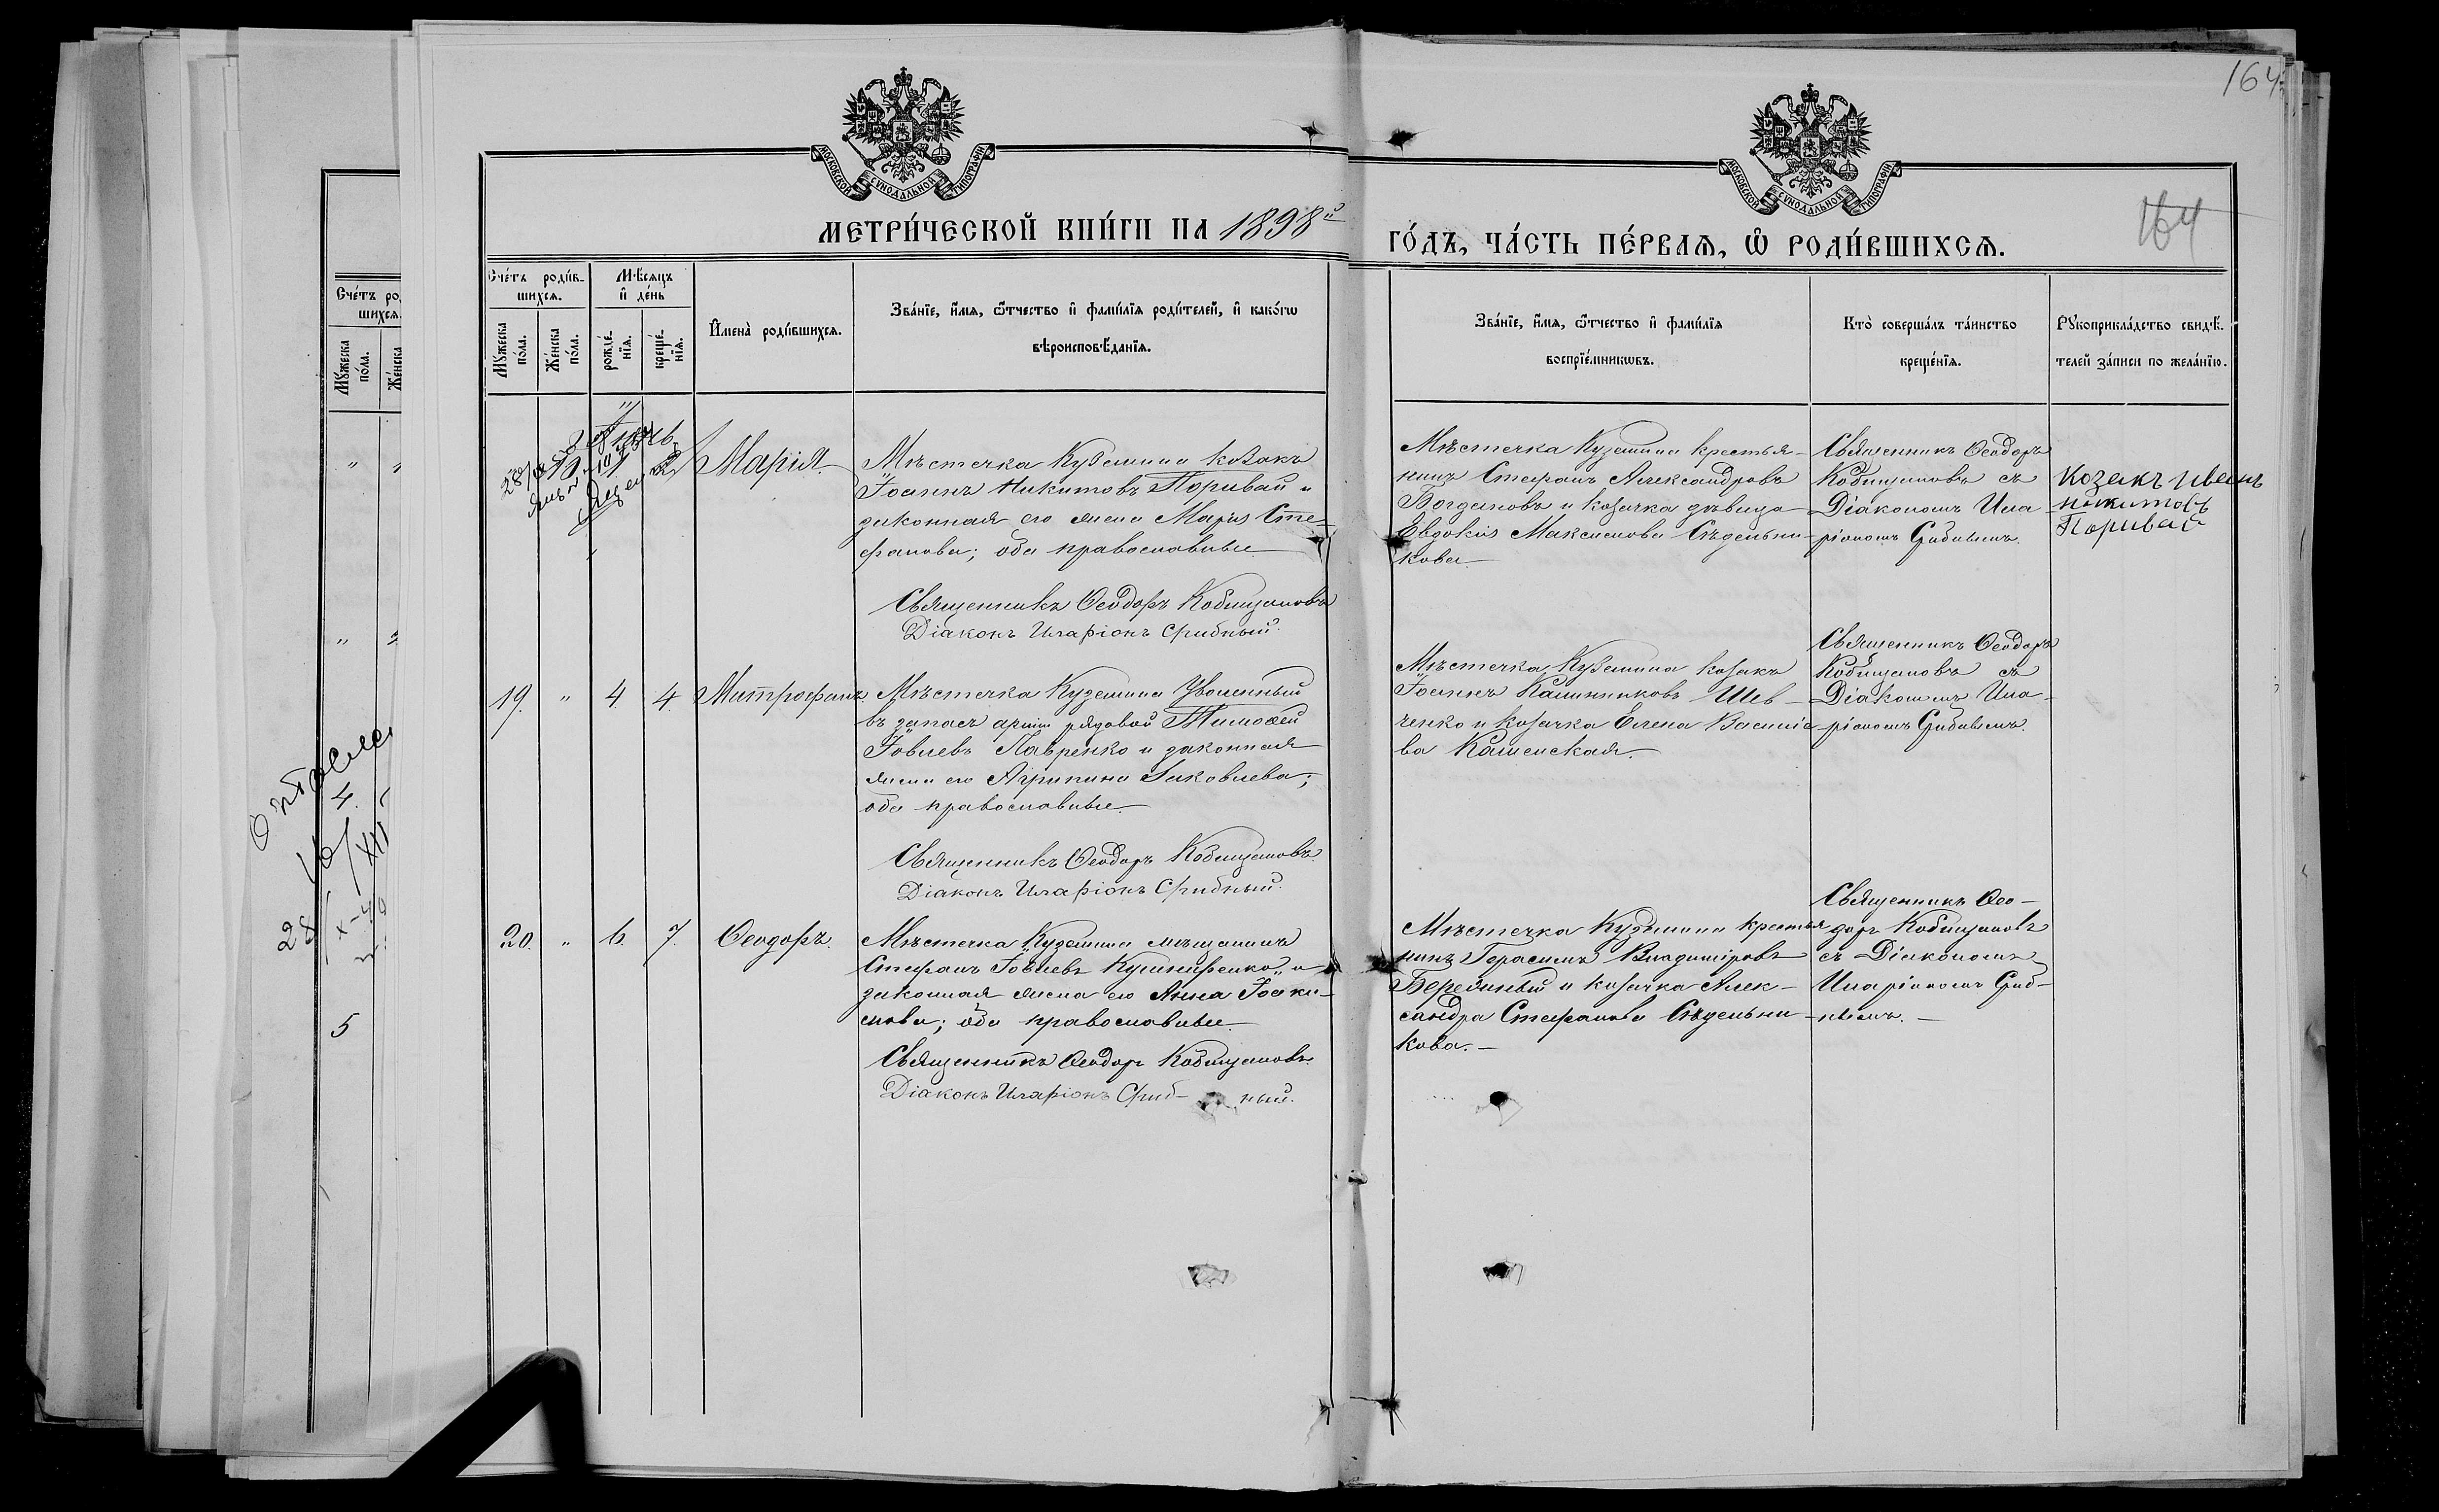 164
МОСКОВСКОЙ СУНОДАЛЬНОЙ ТИПОГРАФІИ
МОСКОВСКОЙ СУНОДАЛЬНОЙ ТИПОГРАФІИ
164
МЕТРИ́ЧЕСКОЙ КНИ́ГИ НА 1898й
ГО́ДЪ, ЧА́СТЬ ПЕ́РВАѦ, Ѡ҆ РОДИ́ВШИХСѦ.
Сче́тъ ро
шихсѧ.
Мꙋжеска по́ла.
Же́нска
Сче́тъ роди́в-
шихсѧ.
Мꙋжеска по́ла.
Же́нска по́ла.
Мѣсяцъ
и҆ де́нь
рожде́-нїѧ.
креще́-нїѧ.
И҆мена̀ роди́вшихсѧ.
Зва́нїе, и҆́мѧ, ѻ҆́тчество и҆ фами́лїѧ роди́телей, и҆ како́гѡ
вѣроисповѣ́данїѧ.
Зва́нїе, и҆́мѧ, ѻ҆́тчество и҆ фами́лїѧ
воспрїе́мникѡвъ.
Кто̀ соверша́лъ та́инство
креще́нїѧ.
Рꙋкоприкла́дство свидѣ́-
телей за́писи по жела́нїю.
Марія
Мѣстечка Куземина козакъ
Іоаннъ Никитовъ Поривай и
законная его жена Марія Сте-
фанова; оба православные
Священникъ Ѳеодоръ Кобищановъ
Діаконъ Иларіонъ Срибный.
Мѣстечка Куземина крестья-
нинъ Стефанъ Александровъ
Богдановъ и козачка дѣвица
Евдокія Максимова Сѣдельни-
кова
Священникъ Ѳеодоръ
Кобищановъ съ
Діакономъ Ила-
ріономъ Срибнымъ.
Козакъ Иванъ
Никитовъ
Поривай
19. " 4 4. Митрофанъ
Мѣстечка Куземина Уволенный
въ запасъ арміи рядовой Тимоѳей
Іовлевъ Лавренко и законная
жена его Агрипина Іаковлева;
оба православные
Священникъ Ѳеодоръ Кобищановъ.
Діаконъ Иларіонъ Срибный.
Мѣстечка Куземина козакъ
Іоаннъ Калинниковъ Шев-
ченко и козачка Елена Василіе
ва Каменская.
Священникъ Ѳеодоръ
Кобищановъ съ
Діакономъ Ила-
ріономъ Срибнымъ.
20. " 6. 7. Ѳеодоръ.
Мѣстечка Куземина мѣщанинъ
Стефанъ Іовлевъ Кушниренко и
законная жена его Анна Іоаки-
мова; оба православные
Священникъ Ѳеодоръ Кобищановъ.
Діаконъ Иларіонъ Сриб- ный.
Мѣстечка Куземина крестья
нинъ Герасимъ Владиміровъ
и козачка Алек-
сандра Стефанова Сѣдельни-
кова.
Священникъ Ѳео-
доръ Кобищановъ
съ Діакономъ
Иларіономъ Сриб-
нымъ.
4.
5